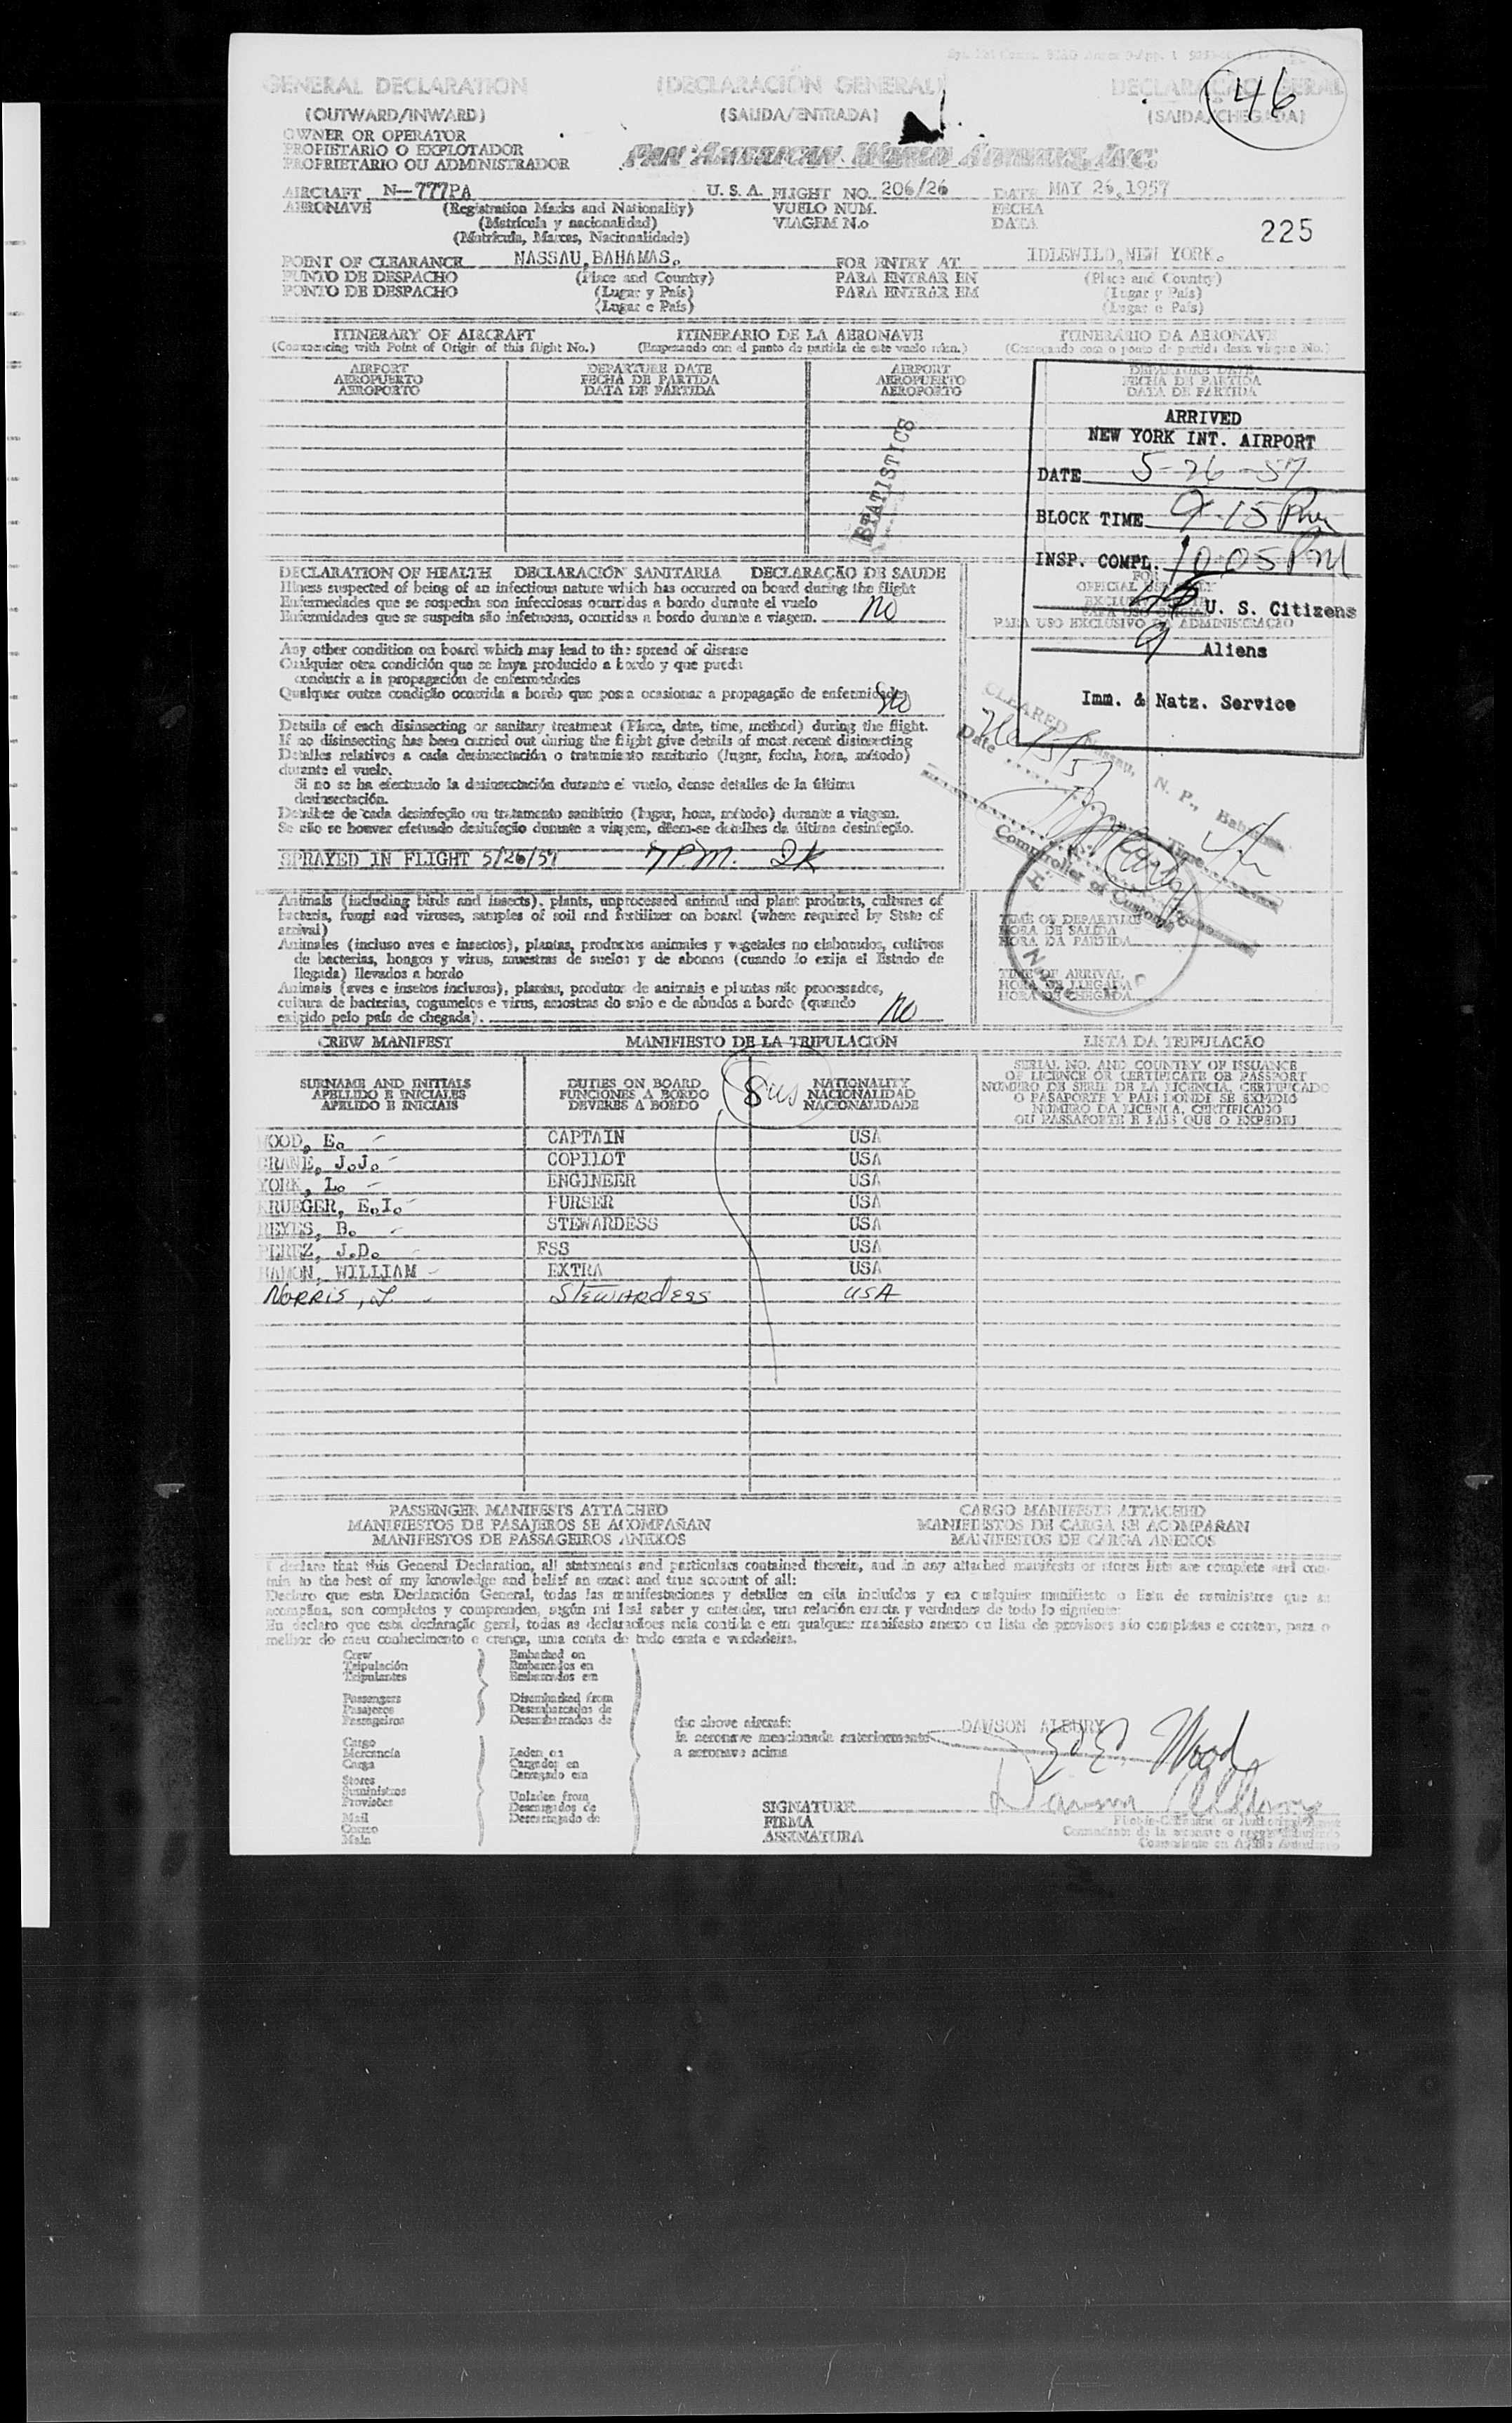 GENERAL DECLARATION (DECLARACIÓN GENERAL) DECLARAÇÃO GERAL
46
(OUTWARD/INWARD) (SALIDA/ENTRADA) (SAIDA/CHEGADA)
OWNER OR OPERATOR
PROPIETARIO O EXPLOTADOR
PROPRIETARIO OU ADMINISTRADOR
PAN AMERICAN WORLD AIRWAYS, INC.
AIRCRAFT N-777PA U. S. A. FLIGHT NO. 206/26 DATE MAY 26, 1957
AERONAVE (Registration Marks and Nationality) VUELO NUM. FECHA
(Matrícula y nacionalidad) VIAGEM N.o DATA
(Matrícula, Marcas, Nacionalidade)
225
POINT OF CLEARANCE NASSAU, BAHAMAS. FOR ENTRY AT IDLEWILD, NEW YORK.
PUNTO DE DESPACHO (Place and Country) PARA ENTRAR EN (Place and Country)
PONTO DE DESPACHO (Lugar y País) PARA ENTRAR EM (Lugar y País)
(Lugar e País) (Lugar e País)
ITINERARY OF AIRCRAFT ITINERARIO DE LA AERONAVE ITINERÁRIO DA AERONAVE
(Commencing with Point of Origin of this flight No.) (Empezando con el punto de partida de este vuelo núm.) (Começando com o ponto de partida desta viagem No.)
AIRPORT DEPARTURE DATE AIRPORT DEPARTURE DATE
AEROPUERTO FECHA DE PARTIDA AEROPUERTO FECHA DE PARTIDA
AEROPORTO DATA DE PARTIDA AEROPORTO DATA DE PARTIDA
STATISTICS
ARRIVED
NEW YORK INT. AIRPORT
DATE 5-26-57
BLOCK TIME 9:15 Pm
INSP. COMPL. 10:05 PM
FOR
OFFICIAL USE ONLY
U. S. Citizens
PARA USO EXCLUSIVO DA ADMINISTRAÇÃO
9 Aliens
Imm. & Natz. Service
DECLARATION OF HEALTH DECLARACIÓN SANITARIA DECLARAÇÃO DE SAUDE
Illness suspected of being of an infectious nature which has occurred on board during the flight
Enfermedades que se sospecha son infecciosas ocurridas a bordo durante el vuelo
Enfermidades que se suspeita são infetuosas, ocorridas a bordo durante a viagem. no
Any other condition on board which may lead to the spread of disease
Cualquier otra condición que se haya producido a bordo y que pueda
conducir a la propagación de enfermedades
Qualquer outra condição ocorrida a bordo que possa ocasionar a propagação de enfermidades no
Details of each disinsecting or sanitary treatment (Place, date, time, method) during the flight.
If no disinsecting has been carried out during the flight give details of most recent disinsecting
Detalles relativos a cada desinsectación o tratamiento sanitario (lugar, fecha, hora, método)
durante el vuelo.
Si no se ha efectuado la desinsectación durante el vuelo, dense detalles de la última
desinsectación.
Detalhes de cada desinfeção ou tratamento sanitário (lugar, hora, método) durante a viagem.
Se não se houver efetuado desinfeção durante a viagem, dêem-se detalhes da última desinfeção.
SPRAYED IN FLIGHT 5/26/57 7 P.M.
CLEARED Nassau, N. P., Bahamas
Date 26/5/57
Time
Comptroller of Customs
Animals (including birds and insects), plants, unprocessed animal and plant products, cultures of
bacteria, fungi and viruses, samples of soil and fertilizer on board (where required by State of
arrival)
Animales (incluso aves e insectos), plantas, productos animales y vegetales no elaborados, cultivos
de bacterias, hongos y virus, muestras de suelos y de abonos (cuando lo exija el Estado de
llegada) llevados a bordo
Animais (aves e insetos inclusos), plantas, produtos de animais e plantas não processados,
cultura de bacterias, cogumelos e virus, amostras do solo e de abudos a bordo (quando
exigido pelo país de chegada). no
TIME OF DEPARTURE
HORA DE SALIDA
HORA DA PARTIDA
TIME OF ARRIVAL
HORA DE LLEGADA
HORA DE CHEGADA
CREW MANIFEST MANIFIESTO DE LA TRIPULACIÓN LISTA DA TRIPULAÇÃO
8 us
SURNAME AND INITIALS DUTIES ON BOARD NATIONALITY
APELLIDO E INICIALES FUNCIONES A BORDO NACIONALIDAD
APELIDO E INICIAIS DEVERES A BORDO NACIONALIDADE
SERIAL NO. AND COUNTRY OF ISSUANCE
OF LICENCE OR CERTIFICATE OR PASSPORT
NUMERO DE SERIE DE LA LICENCIA, CERTIFICADO
O PASAPORTE Y PAIS DONDE SE EXPIDIO
NÚMERO DA LICENÇA, CERTIFICADO
OU PASSAPORTE E PAIS QUE O EXPEDIU
WOOD, E. CAPTAIN USA
CRANE, J.J. COPILOT USA
YORK, L. ENGINEER USA
KRUEGER, E.I. PURSER USA
REYES, B. STEWARDESS USA
PEREZ, J.D. FSS USA
HAMON, WILLIAM EXTRA USA
NORRIS, J. STEWARDESS USA
PASSENGER MANIFESTS ATTACHED CARGO MANIFESTS ATTACHED
MANIFIESTOS DE PASAJEROS SE ACOMPAÑAN MANIFIESTOS DE CARGA SE ACOMPAÑAN
MANIFESTOS DE PASSAGEIROS ANEXOS MANIFESTOS DE CARGA ANEXOS
I declare that this General Declaration, all statements and particulars contained therein, and in any attached manifests or stores lists are complete and con-
tain to the best of my knowledge and belief an exact and true account of all:
Declaro que esta Declaración General, todas las manifestaciones y detalles en ella incluidos y en cualquier manifiesto o lista de suministros que se
acompaña, son completos y comprenden, según mi leal saber y entender, una relación exacta y verdadera de todo lo siguiente:
Eu declaro que esta declaração geral, todas as declarações nela contida e em qualquer manifesto anexo ou lista de provisões são completas e contem, para o
melhor do meu conhecimento e crença, uma conta de todo exata e verdadeira.
Crew Embarked on
Tripulación Embarcados en
Tripulantes Embarcados em
Passengers Disembarked from
Pasajeros Desembarcados de
Passageiros Desembarcados de
the above aircraft
la aeronave mencionada anteriormente
a aeronave acima
DAWSON ALBURY
Ed E. Wood
Cargo
Mercancía Laden on
Carga Cargados en
Stores Carregado em
Suministros
Provisões Unladen from
Mail Descargados de
Correo Descarregado de
Mala
SIGNATURE Dawson Albury
FIRMA
ASSINATURA
Pilot-in-Command or Authorized Agent